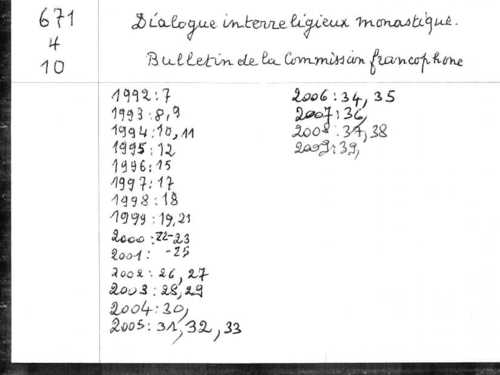 671
4
10
Dialogue interreligieux monastique.
Bulletin de la Commission francophone
1992:7
1993:8,9
1994:10,11
1995:12
1996:15
1997:17
1998:18
1999:19,21
2000:22-23
2001: -25
2002:26,27
2003:28,29
2004:30,
2005:31,32,33
2006:34,35
2007:36,
2008:37,38
2009:39,